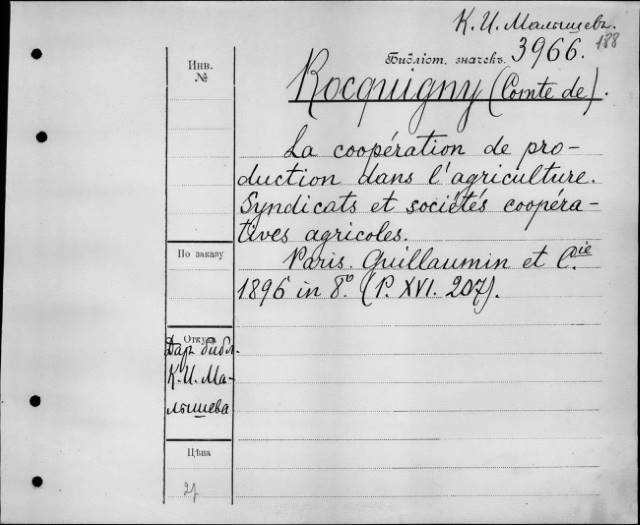 К. И. Малышевъ.
188
Библіот. значекъ. 3966.
Инв.
№
Rocquigny (Comte de).
La coopération de pro-
duction dans l'agriculture.
Syndicats et sociétés coopéra-
tives agricoles.
По заказу
Paris. Guillaumin et Cie
1896 in 8º. (P. XVI. 207).
Откуда
Даръ библ.
К. И. Ма-
лышева
Цѣна